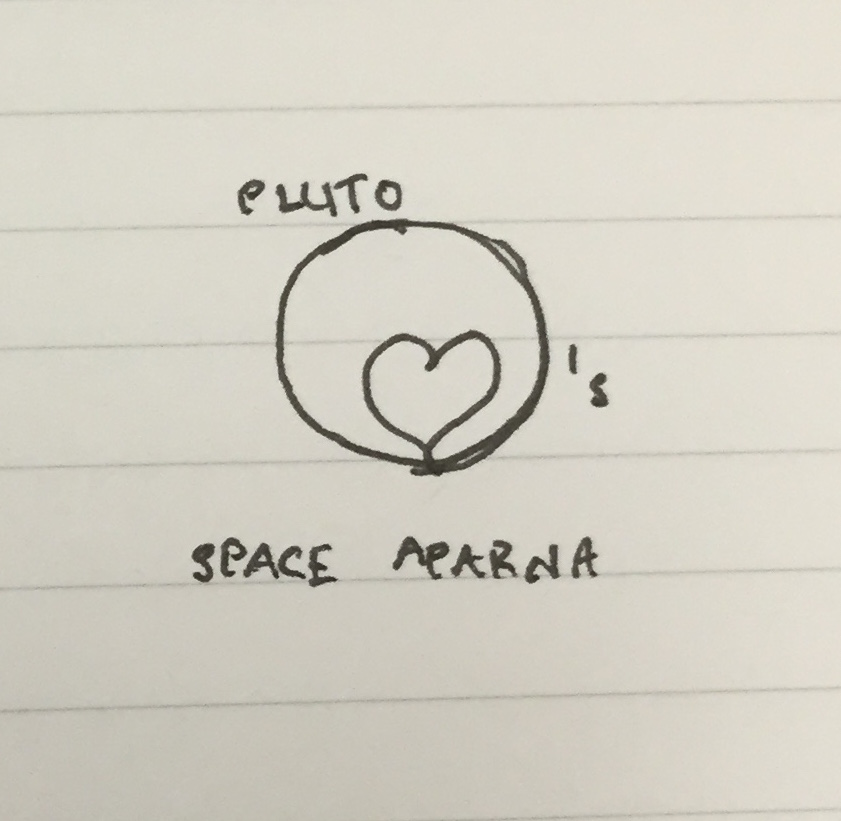 PLUTO
's
SPACE APARNA